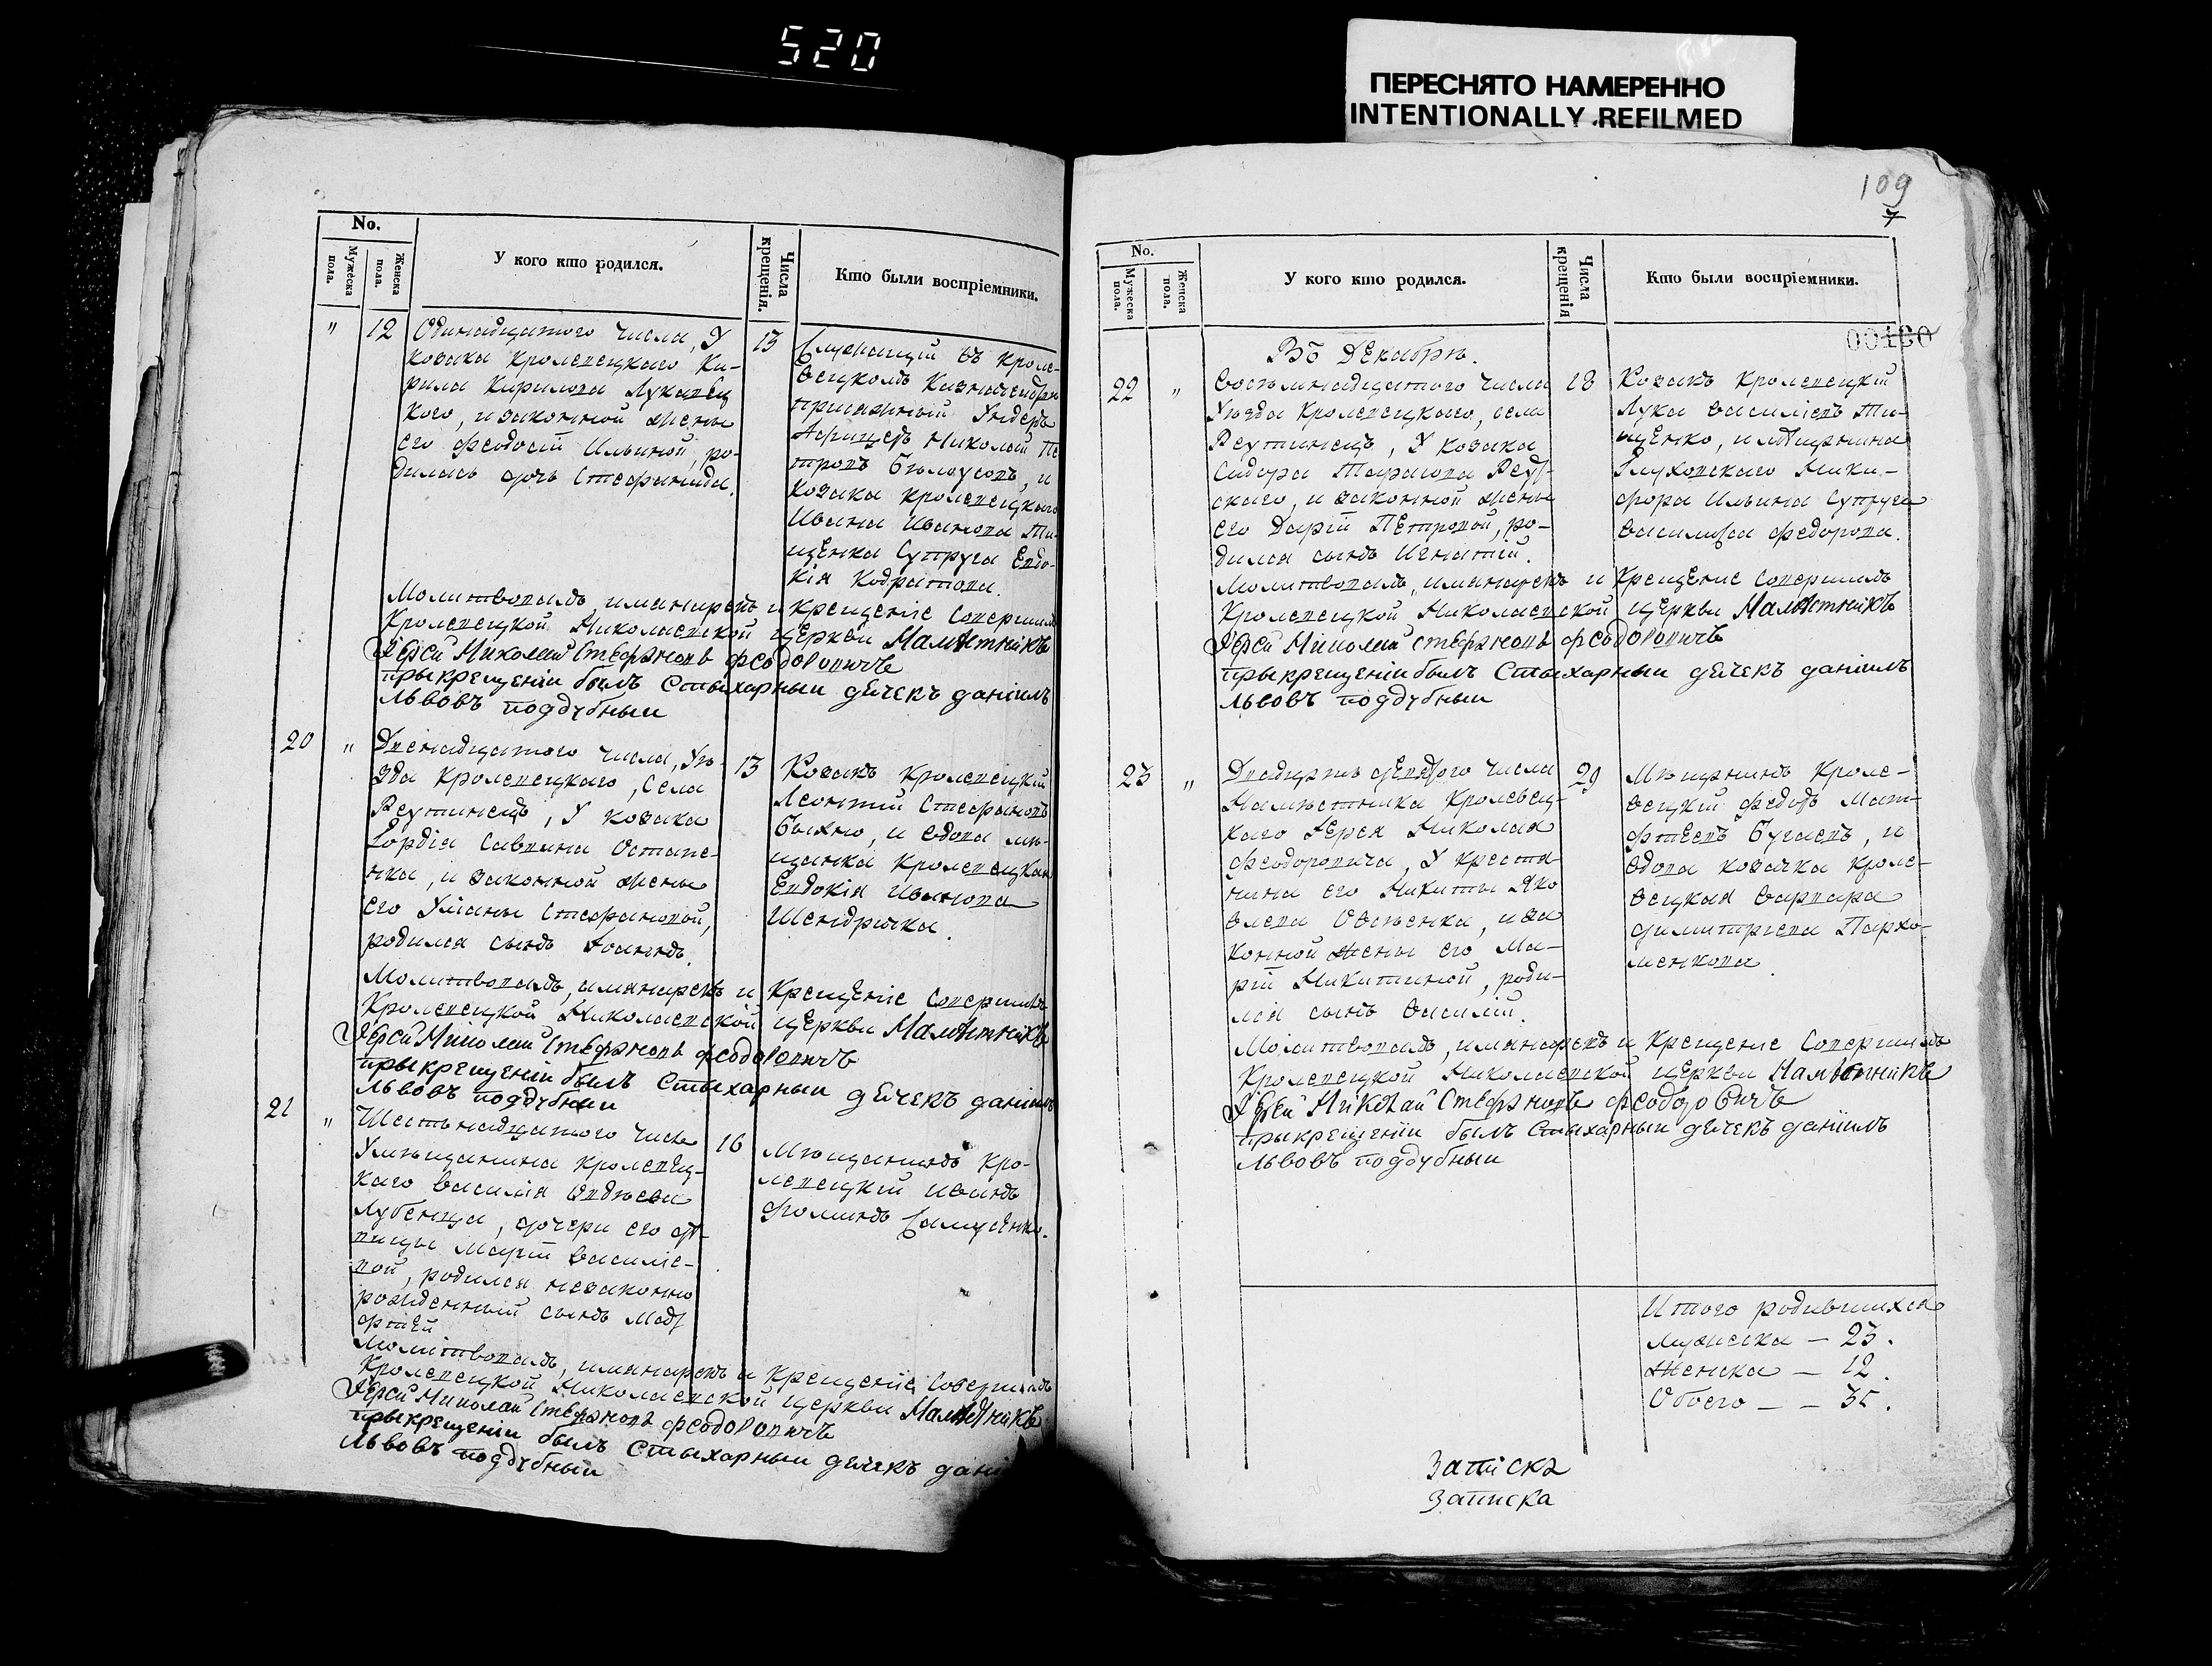 520
ПЕРЕСНЯТО НАМЕРЕННО
INTENTIONALLY REFILMED
No.
Мужеска пола.
Женска пола.
У кого кто родился.
Числа крещенія.
Кто были воспріемники.
" 12
Одинадцатого числа, У
козака кролевецкаго Ки-
рила Кирилова Лукавец
кого, и законной жены
его Феодосіи Ильиной, ро-
дилась дочь Стефанида.
13
Служащій въ кроле-
вецкомъ Казначействѣ
присяжный Ундеръ
Афицеръ Николай Пе
тровъ Билоусовъ, и
Козака кролевецкаго
Ивана Иванова Ти-
щенка Супруга Евдо-
кія Кодратова.
Молитвовалъ, имянарекъ и крещеніе совершилъ
Кролевецкой Николаевской церкви Намѣстникъ
Іерей Николай Стефановъ Феодоровичъ
прыкрещеніи былъ Стыхарныи дячекъ даніилъ
Львовъ поддубныи
20 "
Двенадцатого числа, Уѣ-
зда Кролевецкаго, Села
Реутинецъ, У козака
Гордія Саввина Остапе-
нка, и законной жены
его Уліаны Стефановой,
родился сынъ Іоаннъ.
13
Козакъ Кролевецкій
Леонтій Стефановъ
Быхно, и вдова мѣ-
щанка Кролевецкая
Евдокія Иванова
Шендрычка.
Молитвовалъ, имянарекъ и Крещеніе Совершилъ
Кролевецкой Николаевской церкви Намѣстникъ
Іерей Николай Стефановъ Феодоровичъ
прыкрещеніи былъ Стыхарныи дячекъ даніилъ
Львовъ поддубныи
21 "
Шестьнадцатого числа
У мѣщанина кролевец-
каго Василія Авдѣева
Лубенца, дочери его дѣ-
вицы Маріи Василіе-
вой, родился незаконно
рожденный сынъ Мат
фтей
16
Мѣщанинъ Кро-
левецкій Иванъ
Фоминъ Самусенко.
Молитвовалъ, имянарекъ и Крещеніе Совершилъ
Кролевецкой Николаевской церкви Намѣстникъ
Іерей Николай Стефановъ Феодоровичъ
прыкрещеніи былъ Стыхарныи дячекъ дані
Львовъ поддубныи
109
7
00130
No.
Мужеска пола.
Женска пола.
У кого кто родился.
Числа крещенія
Кто были воспріемники.
Въ Декабрѣ.
22 "
Восѣмнадцатого числа
Уѣзда Кролевецкаго, села
Реутинецъ, У козака
Сидора Тарасова Реут-
скаго, и законной жены
его Даріи Петровой, ро-
дился сынъ Игнатій.
18
Козакъ Кролевецкій
Лука Василіевъ Ти-
щенко, и мѣщанина
Глуховскаго Ники-
фора Ильина Супруга
Василиса Федорова.
Молитвовалъ, имянарекъ и Крещеніе Совершилъ
Кролевецкой Николаевской церкви Намѣстникъ
Іерей Николай Стефановъ Феодоровичъ
прыкрещеніи былъ Стыхарныи дячекъ даніилъ
Львовъ поддубныи
23 "
Двадцять девятого числа
Намѣстника Кролевец-
каго Іерея Николая
Феодоровича, У крестя-
нина его Никиты Яко
влева Овсѣенка, и за
конной жены его Ма-
ріи Никитиной, роди-
лся сынъ Василій.
29
Мѣщанинъ Кроле-
вецкій Федоръ Мат-
фтеевъ Бугаевъ, и
вдова козачка Кроле-
вецкая Варвара
Димитриева Пархо-
менкова
Молитвовалъ, имянарекъ и Крещеніе Совершилъ
Кролевецкой Николаевской церкви Намѣстникъ
Іерей Николай Стефановъ Феодоровичъ
прыкрещеніи былъ Стыхарныи дячекъ даніилъ
Львовъ поддубныи
Итого родившихся
Мужеска — 23.
Женска — 12.
Обоего — — 35.
Записка
Записка